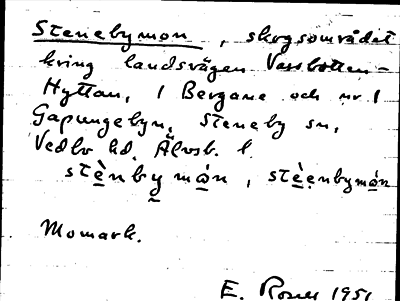 Stenebymon, skogsområdet
kring landsvägen Vassbotten-
Hyttan, 1 Bergane och nr 1
Gapungebyn, Steneby sn,
Vedbo hd. Älvsb. l.
stè̱nby̰ mó̱n, stè̱e̱nbymó̱n
Momark.
E. 1951